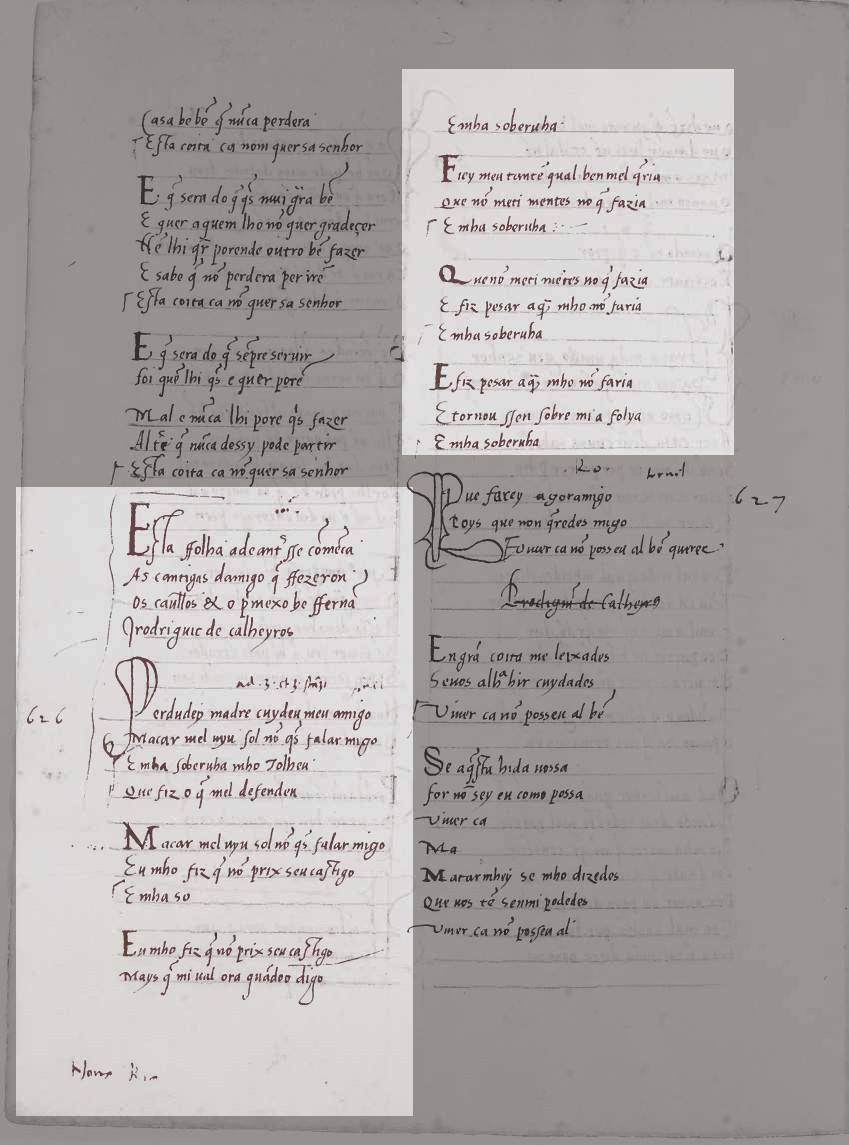 Casa be bẽ q̃ nũca perdera
Esta coita ca nom quer sa senhor
E q̃ sera do q̃ q̃s mui grã bẽ
E quer a quem lho nõ quer gradeçer
Nẽ lhi q̃r porende outro bẽ fazer
E sabe q̃ nõ perdera per irẽ
Esta coita ca nõ quer sa senhor
E q̃ sera do q̃ sẽpre seruir
foi quẽ lhi q̃s e quer porẽ
Mal e nũca lhi pore q̃s fazer
Al tẽ q̃ nũca dessy pode partir
Esta coita ca nõ quer sa senhor
Esta ffolha adeant' sse comeca
As cantigas damigo q̃ ffezeron
os caualłos & o p'mexo he ffernã
rodriguic de calheyros
626
Perdudey madre cuydeu meu amigo
Macar mel uyu sol nõ q̃s falar migo
E mha soberuha mho Tolheu
Que fiz o q̃ mel defendeu
Macar mel uyu sol nõ q̃s falar migo
Eu mho fiz q̃ nõ prix seu castigo
E mha so
Eu mho fiz q̃ nõ prix seu castigo
Mays q̃ mi ual ora quãdoo digo
E mha soberuha
Fiey meu tantẽ qual ben mel q̃ria
Que nõ meti mentes no q̃ fazia
E mha soberuha
Que nõ meti mẽtes no q̃ fazia
E fiz pesar a q̃ mho nõ faria
E mha soberuha
E fiz pesar a q̃ mho nõ faria
E tornou ssen sobre mi a folya
E mha soberuha
627
Que farey agoramigo
Poys que non q̃redes migo
Viuer ca nõ posseu al bẽ querer
Rodrigui de Calheyros
En grã coita me leixades
Seuos alhᵃ hir cuydades
Viuer ca nõ posseu al bẽ
Se aq̃sta hida uossa
for nõ sey eu como possa
Viuer ca
Ma
Matarmhey se mho dizedes
Que uos tẽ sen mi podedes
Viuer ca nõ posseu al